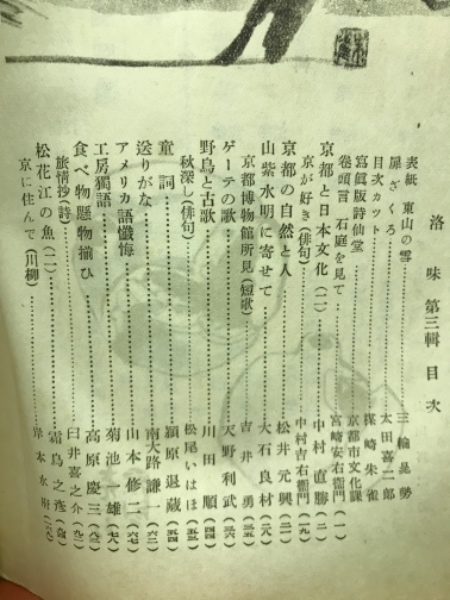 洛味 第三輯 目次
表紙 東山の雪……三輪晁勢
扉 ざくろ……太田喜二郎
目次カット……楳崎朱雀
寫眞版詩仙堂……京都市文化課
巻頭言 石庭を見て……宮崎安右衞門(一)
京都と日本文化(一)……中村直勝(二)
京が好き(俳句)……中村吉右衞門(一九)
京都の自然と人……松井元興(二一)
山紫水明に寄せて……大石良材(二八)
京都博物館所見(短歌)……吉井勇(三五)
ゲーテの歌……天野利武(三六)
野鳥と古歌……川田順(四四)
秋深し(俳句)……松尾いはほ(五三)
童詞……頴原退蔵(五四)
送りがな……南大路謙一(六二)
アメリカ語懺悔……山本修二(六七)
工房獨語……菊池一雄(七八)
食べ物懸物揃ひ……高原慶三(八三)
旅情抄(詩)……臼井喜之介(九二)
松花江の魚(二)……霜鳥之彦(九四)
京に住んで(川柳)……岸本水府